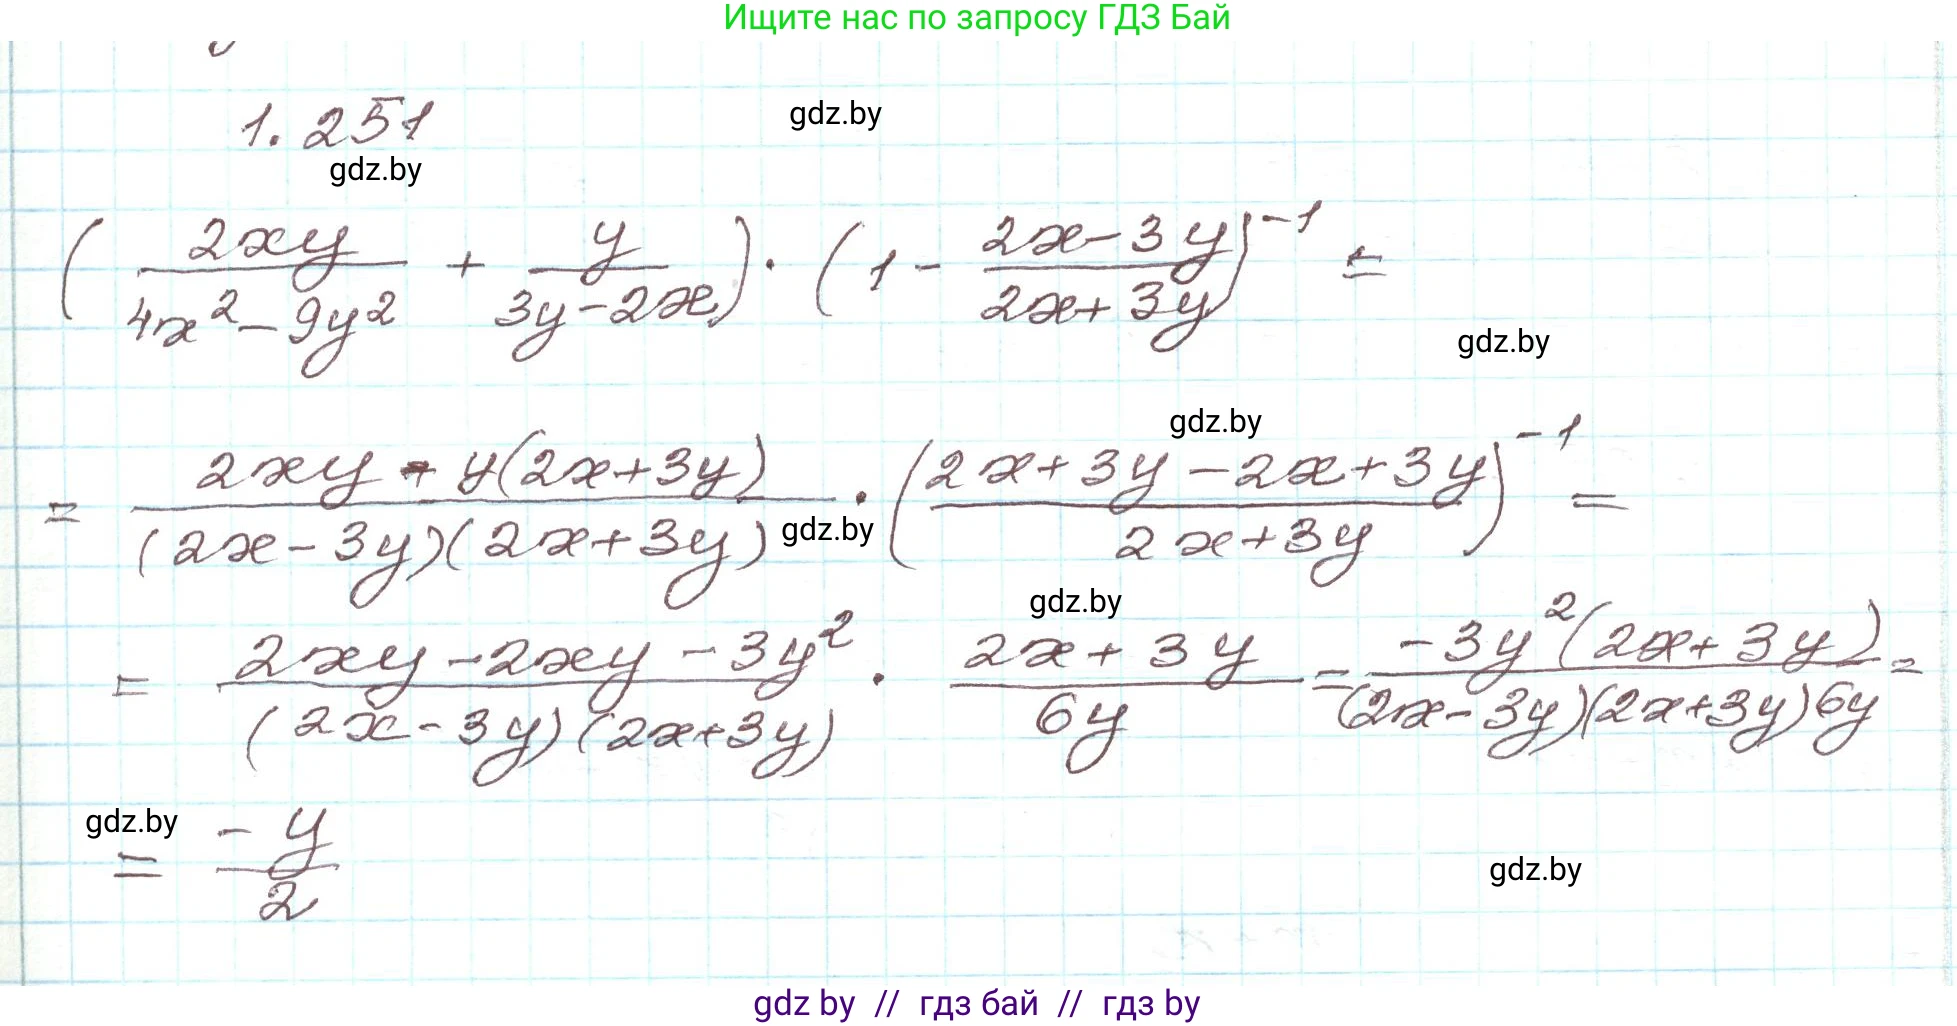 Ищите нас по запросу ГДЗ Бай
1.251
gdz.by
gdz.by
(2xy/(4x² - 9y²) + y/(3y - 2x)) · (1 - (2x - 3y)/(2x + 3y))⁻¹ =
gdz.by
gdz.by
= (2xy - y(2x + 3y))/((2x - 3y)(2x + 3y)) · ((2x + 3y - 2x + 3y)/(2x + 3y))⁻¹ =
gdz.by
gdz.by
= (2xy - 2xy - 3y²)/((2x - 3y)(2x + 3y)) · (2x + 3y)/(6y) = (-3y²(2x + 3y))/((2x - 3y)(2x + 3y)6y) =
gdz.by
= (-y)/2
gdz.by
gdz by // гдз бай // гдз by